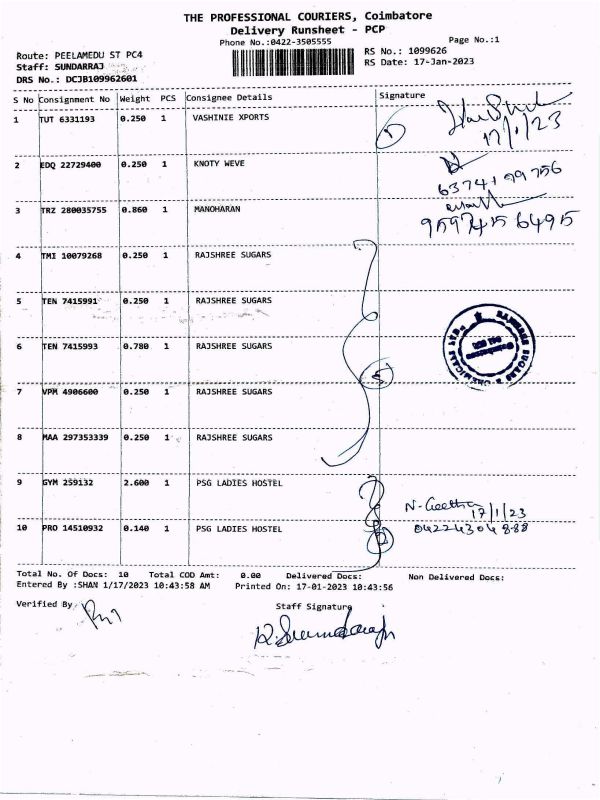 THE PROFESSIONAL COURIERS, Coimbatore
Delivery Runsheet - PCP
Phone No.:0422-3505555
Page No.:1
Route: PEELAMEDU ST PC4
Staff: SUNDARRAJ
DRS No.: DCJB109962601
RS No.: 1099626
RS Date: 17-Jan-2023
S No Consignment No Weight PCS Consignee Details Signature
1 TUT 6331193 0.250 1 VASHINIE XPORTS
17/1/23
2 EDQ 22729400 0.250 1 KNOTY WEVE
3 TRZ 280035755 0.860 1 MANOHARAN
4 TMI 10079268 0.250 1 RAJSHREE SUGARS
5 TEN 7415991 0.250 1 RAJSHREE SUGARS
6 TEN 7415993 0.780 1 RAJSHREE SUGARS
5
RAJSHREE SUGARS & CHEMICALS LTD.
Coimbatore
7 VPM 4906600 0.250 1 RAJSHREE SUGARS
8 MAA 297353339 0.250 1 RAJSHREE SUGARS
9 GYM 259132 2.600 1 PSG LADIES HOSTEL
N. Geetha
17/1/23
10 PRO 14510932 0.140 1 PSG LADIES HOSTEL
2
04224304888
Total No. Of Docs: 10 Total COD Amt: 0.00 Delivered Docs: Non Delivered Docs:
Entered By :SHAN 1/17/2023 10:43:58 AM Printed On: 17-01-2023 10:43:56
Verified By
Staff Signature